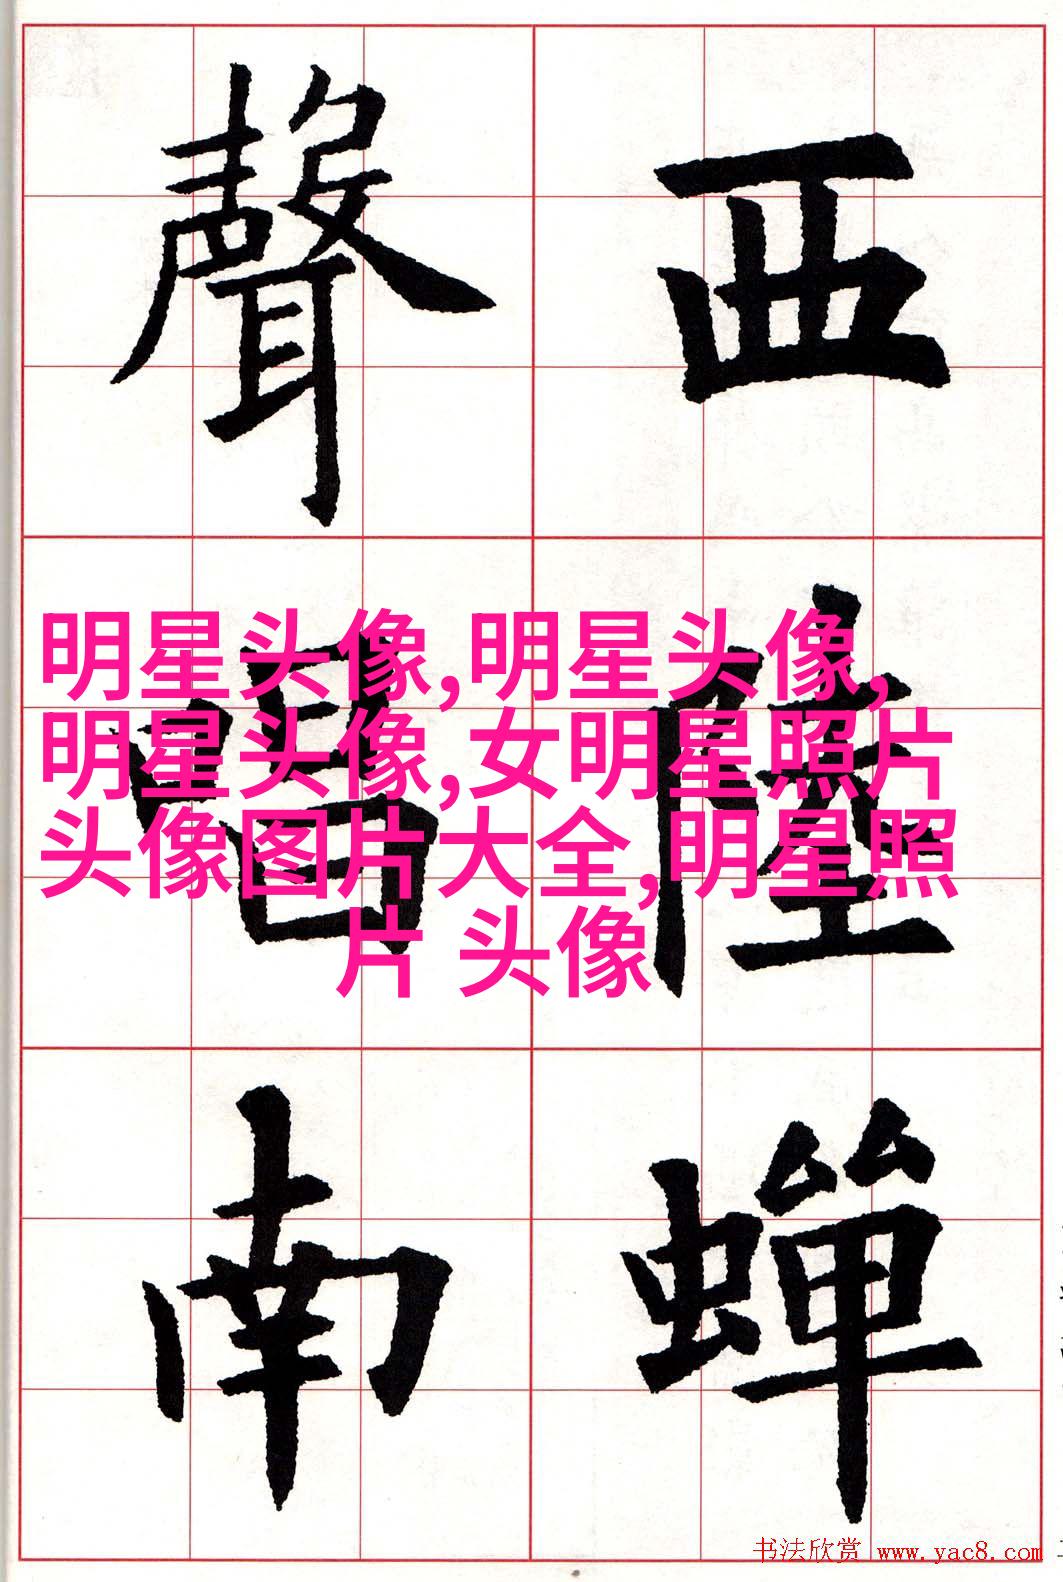 西陸蟬
聲唱南
明星头像,明星头像,
明星头像,女明星照片
头像图片大全,明星照
片 头像
书法欣赏 www.yac8.com